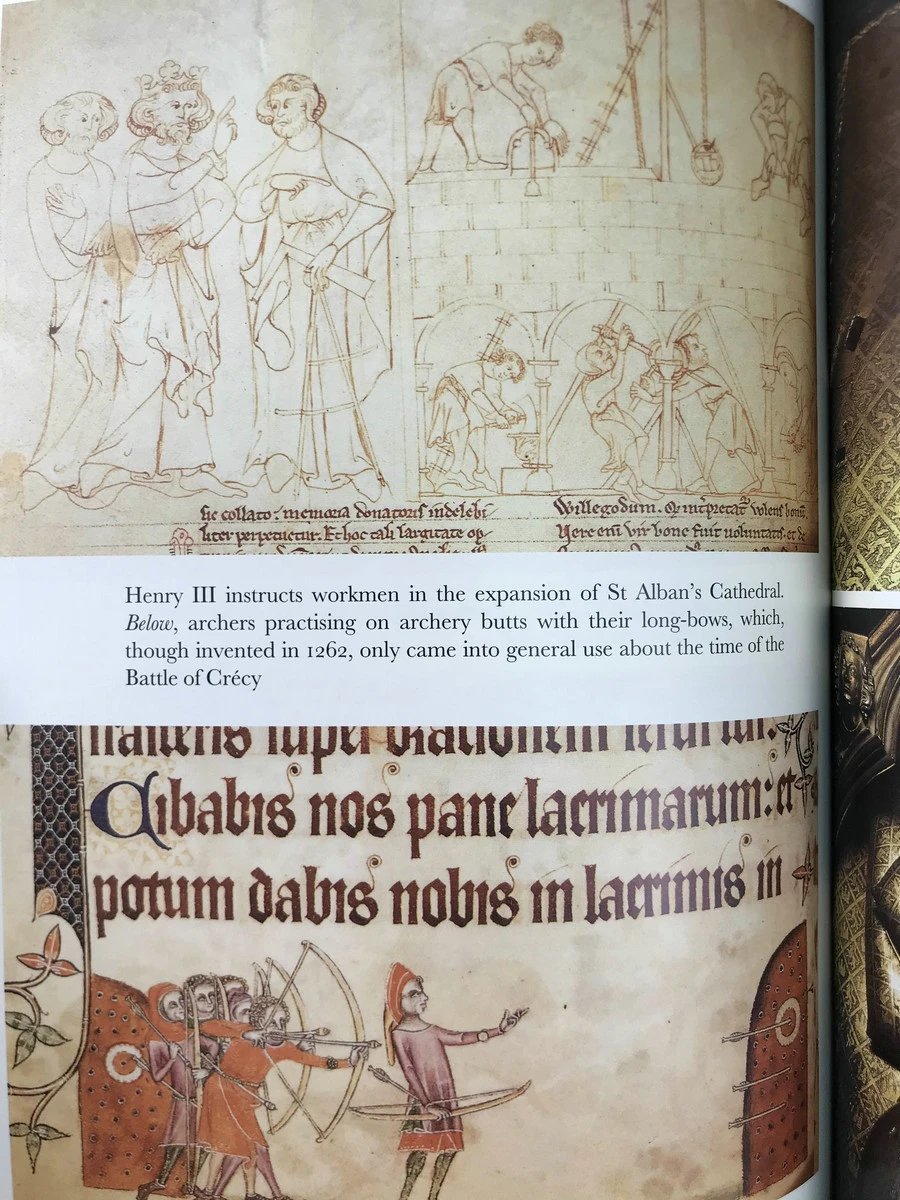 sic collato: memoria donatoris indelebi
liter perpetuetur. Et hoc tali largitate op
Willegodum. Qd int̃pretat᷑ volens bonũ.
Vere em̃ vir bone fuit uoluntatis. et de
Henry III instructs workmen in the expansion of St Alban's Cathedral.
Below, archers practising on archery butts with their long-bows, which,
though invented in 1262, only came into general use about the time of the
Battle of Crécy
Cibabis nos pane lacrimarum: et
potum dabis nobis in lacrimis in